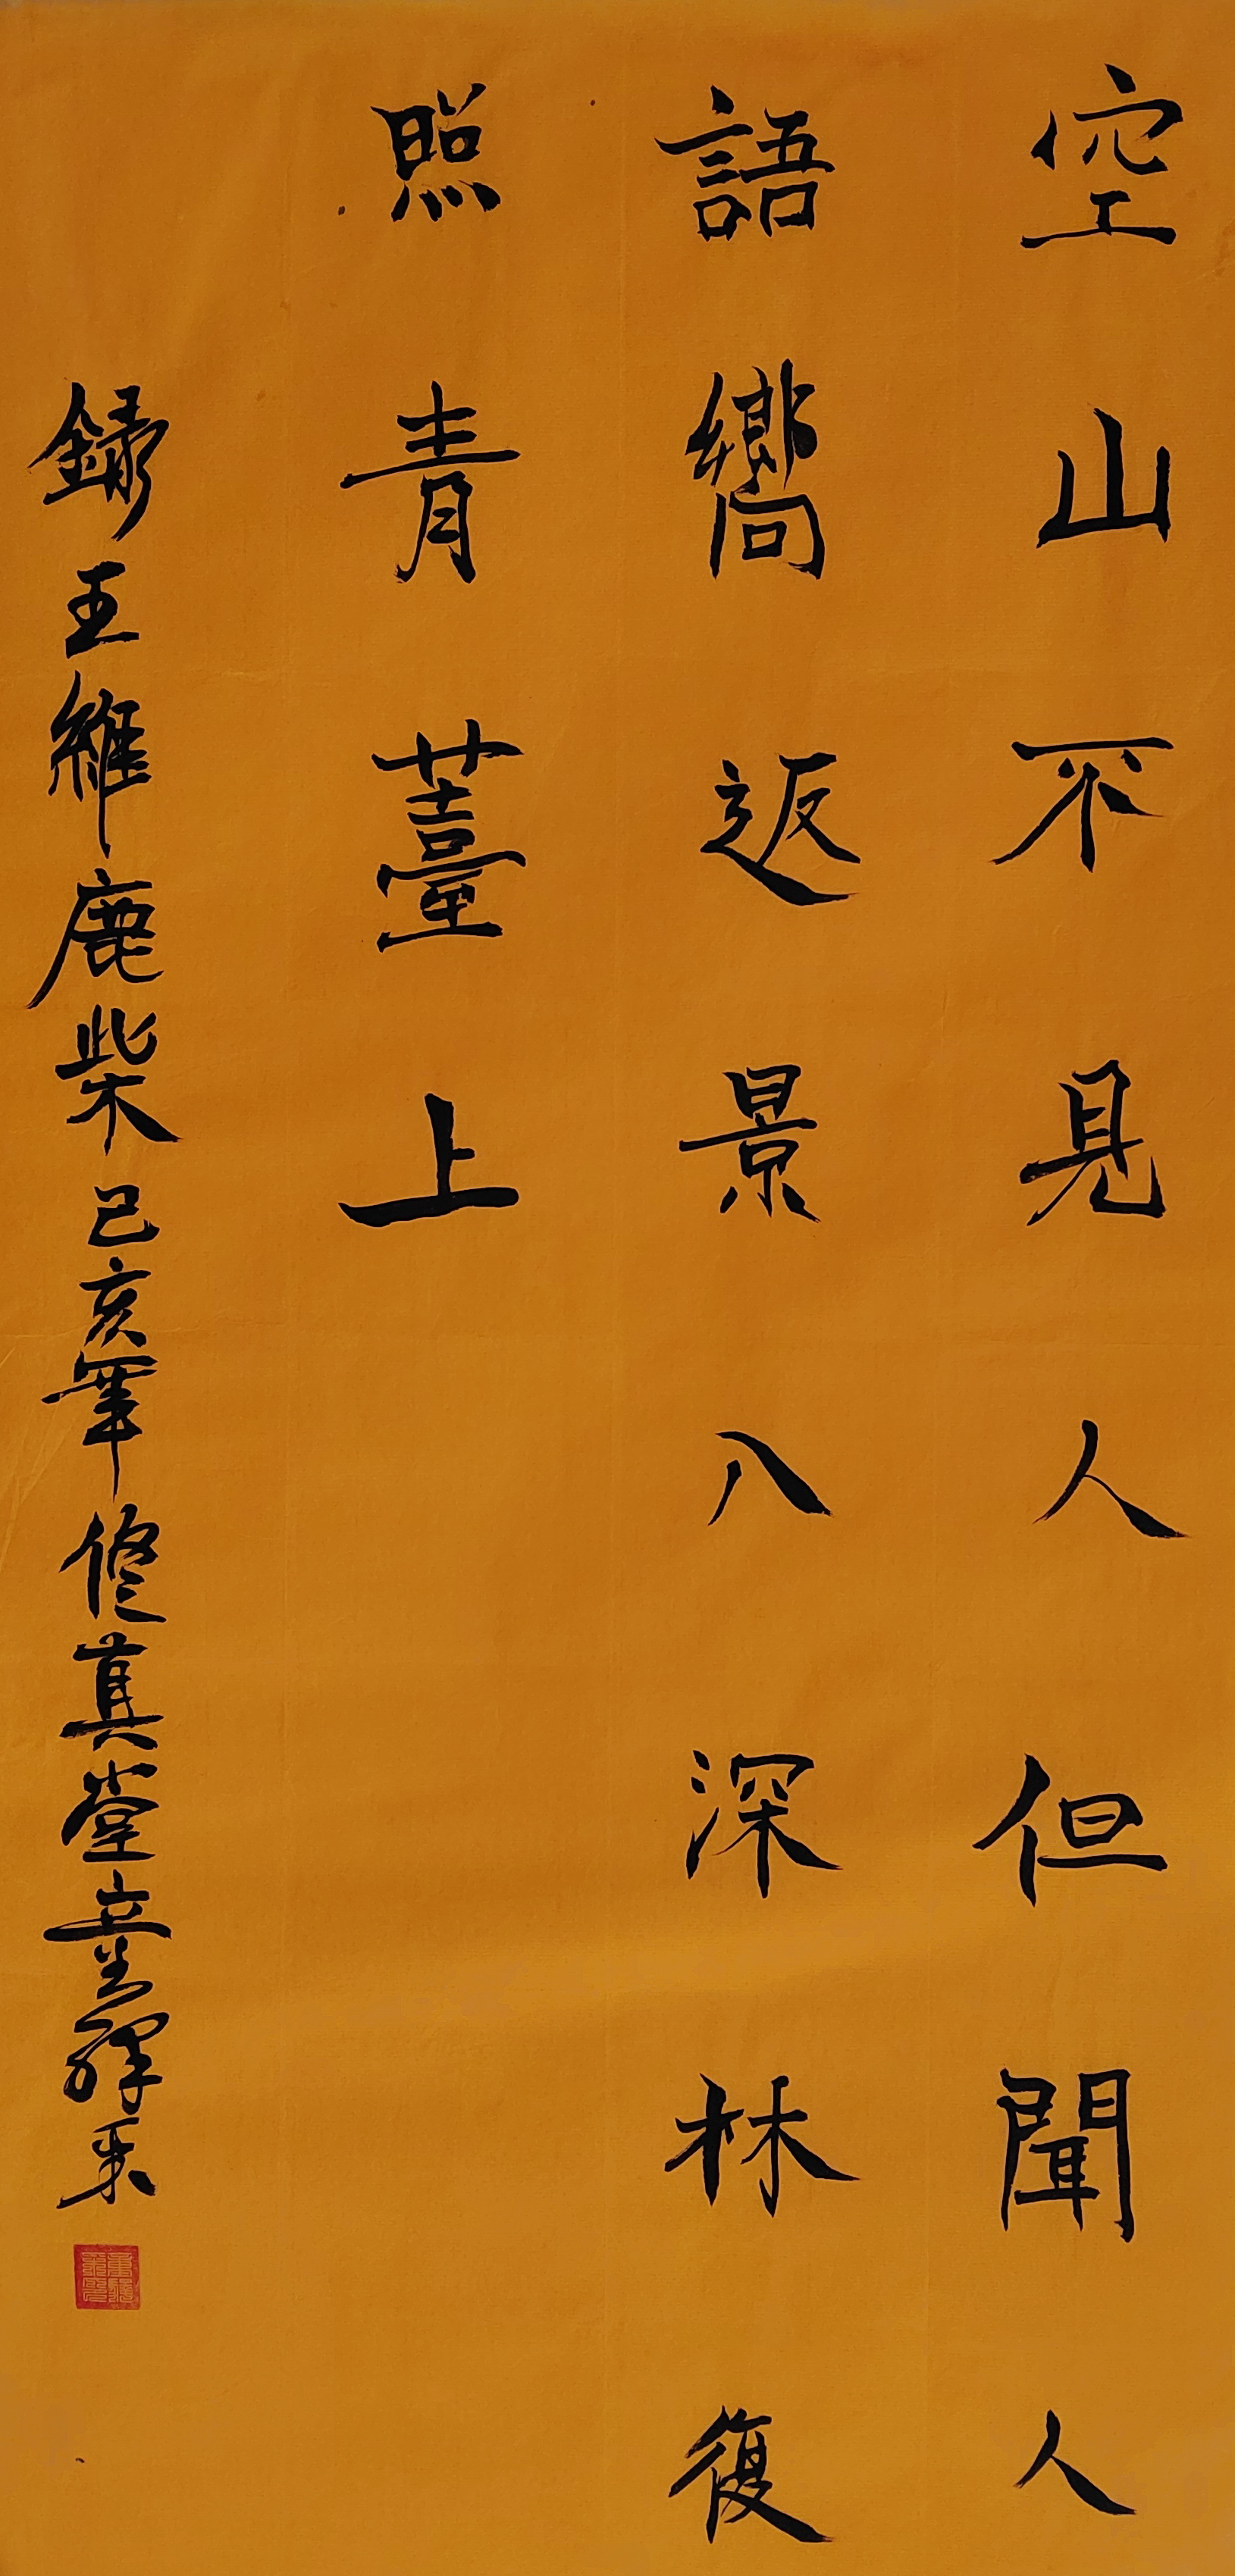 空山不見人但聞人
語嚮返景入深林復
照青薹上
録王維鹿柴己亥年修真堂主釋